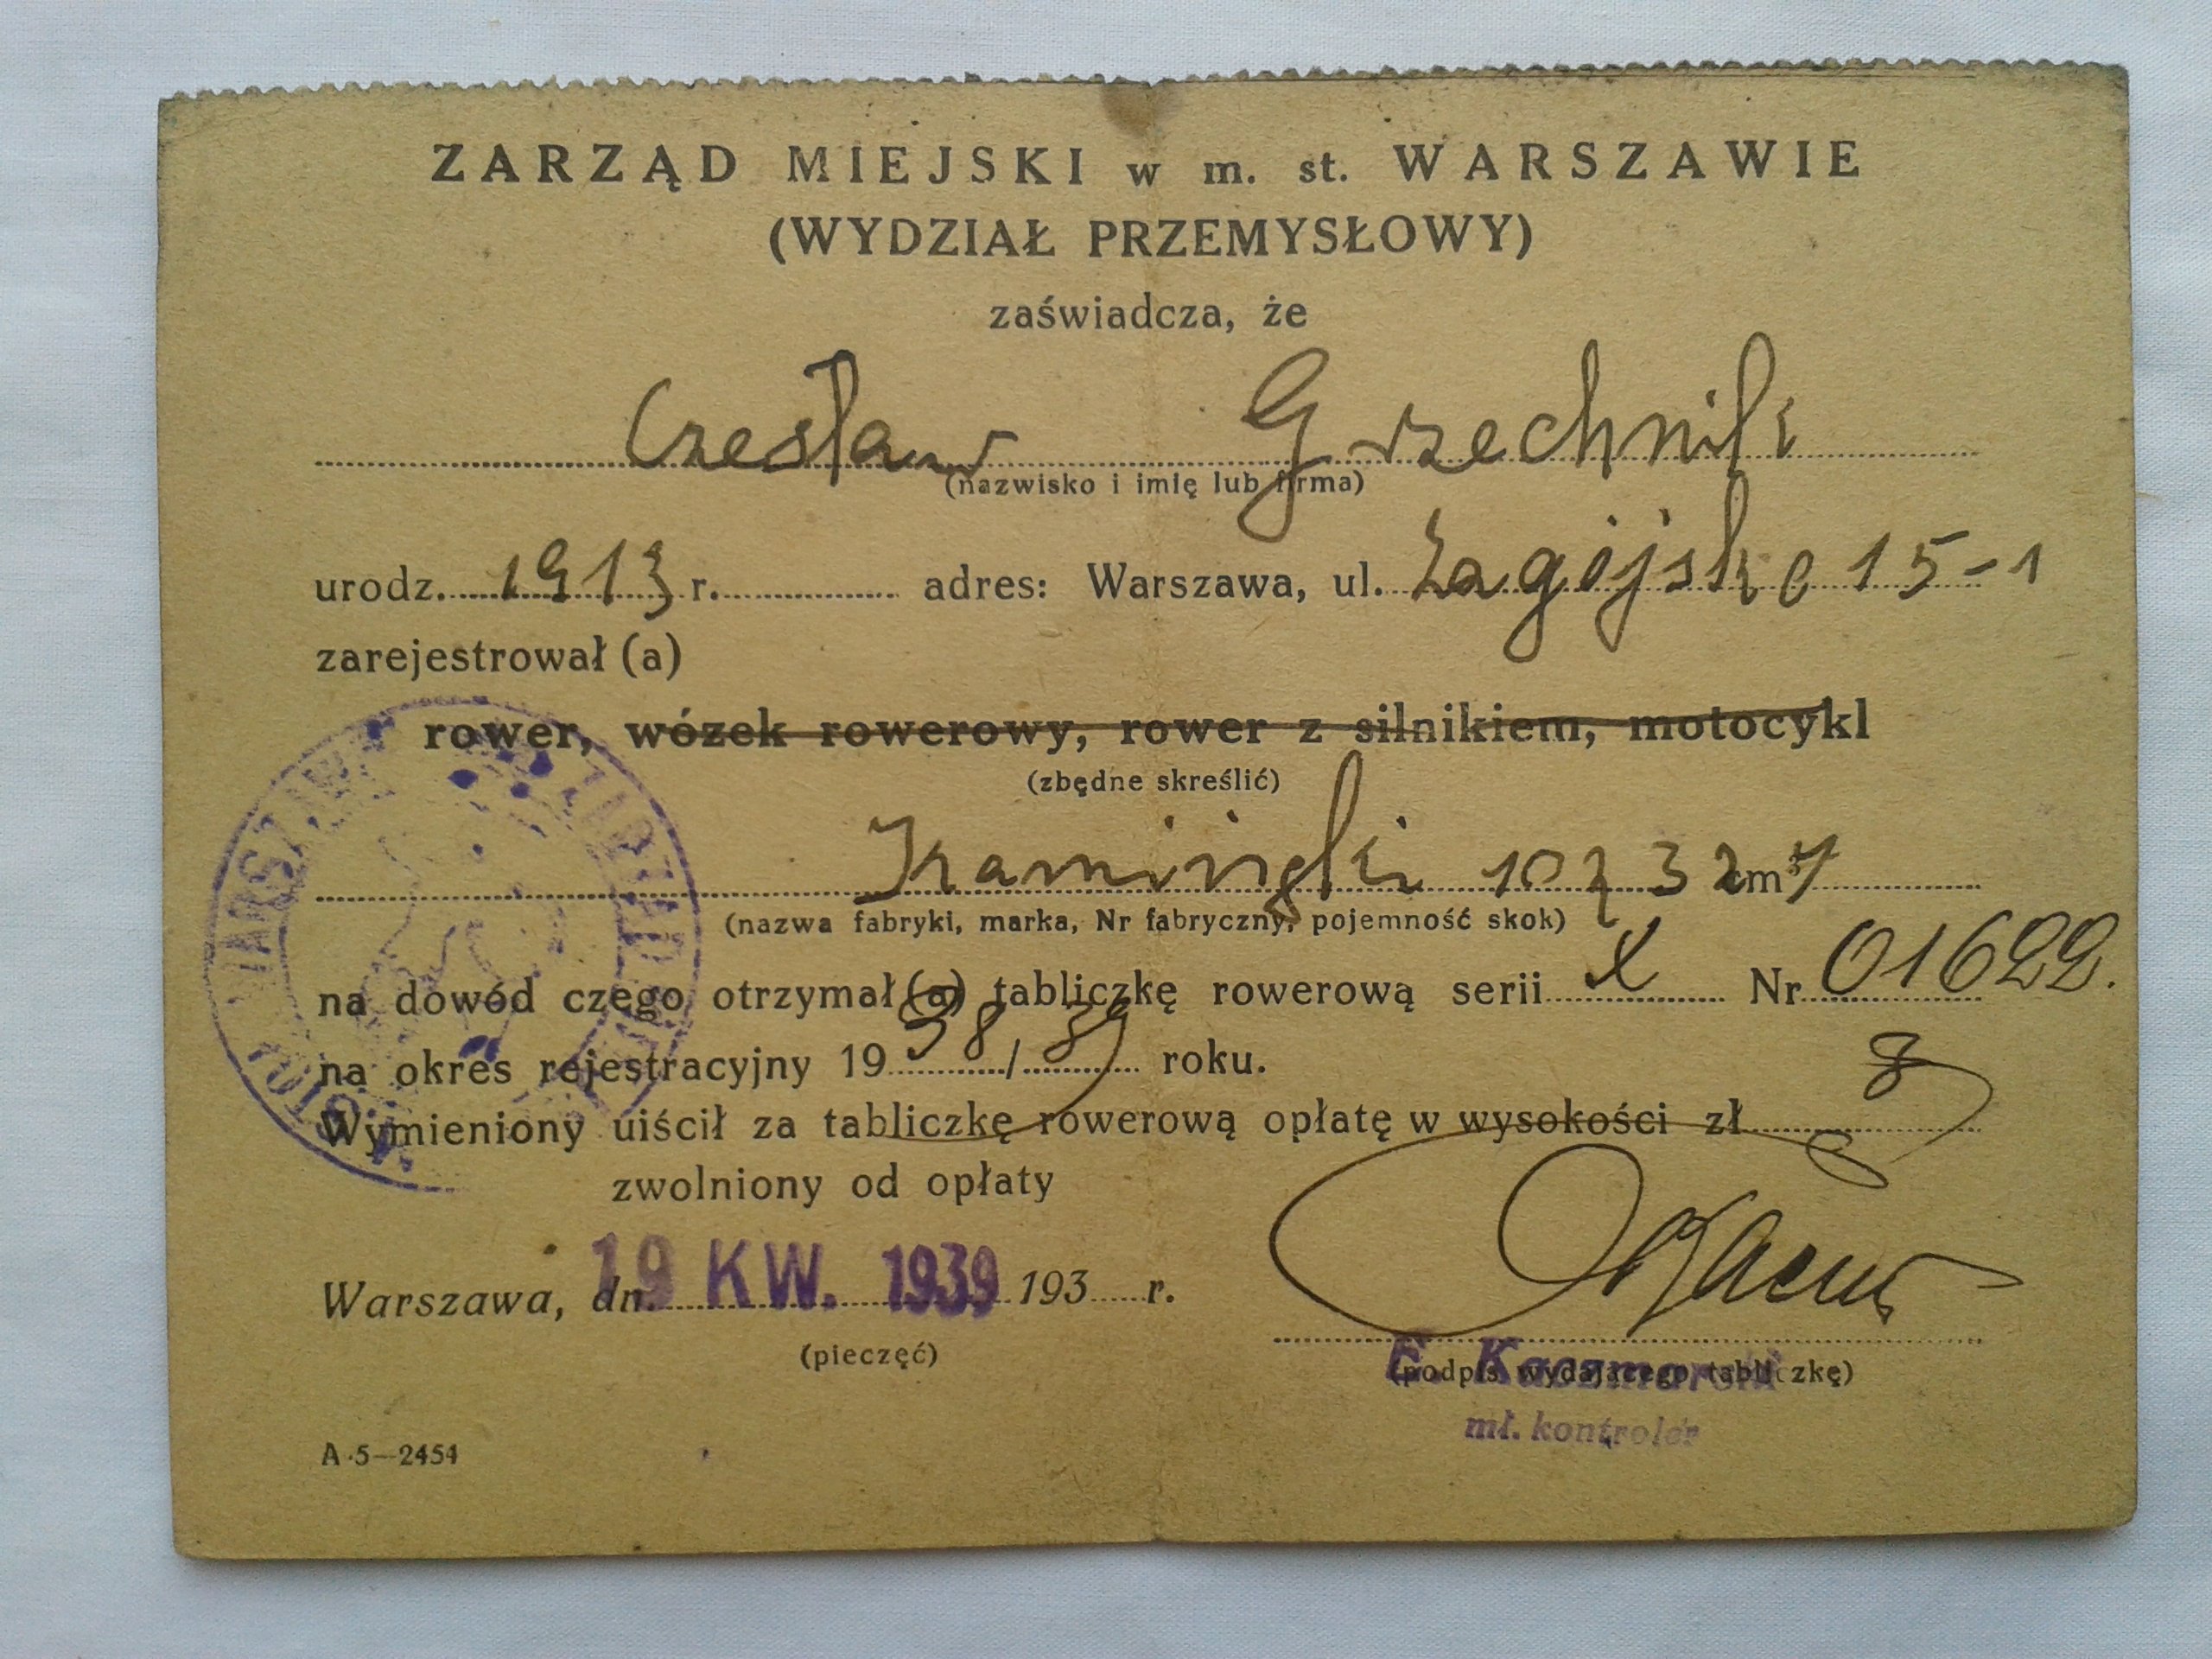 ZARZĄD MIEJSKI w m. st. WARSZAWIE
(WYDZIAŁ PRZEMYSŁOWY)
zaświadcza, że
Czesław Grzechnik
(nazwisko i imię lub firma)
urodz. 1913 r. adres: Warszawa, ul. Zagójska 15-1
zarejestrował (a)
rower, wózek rowerowy, rower z silnikiem, motocykl
(zbędne skreślić)
Kamiński cm³
(nazwa fabryki, marka, Nr fabryczny, pojemność skok)
na dowód czego otrzymał (a) tabliczkę rowerową serii X Nr 01622.
na okres rejestracyjny 1938/39 roku.
Wymieniony uiścił za tabliczkę rowerową opłatę w wysokości zł 8
zwolniony od opłaty
Warszawa, dn. 19 KW. 1939 193 r.
(pieczęć)
E. Kaczmarski
(podpis wydającego tabliczkę)
mł. kontroler
A-5—2454